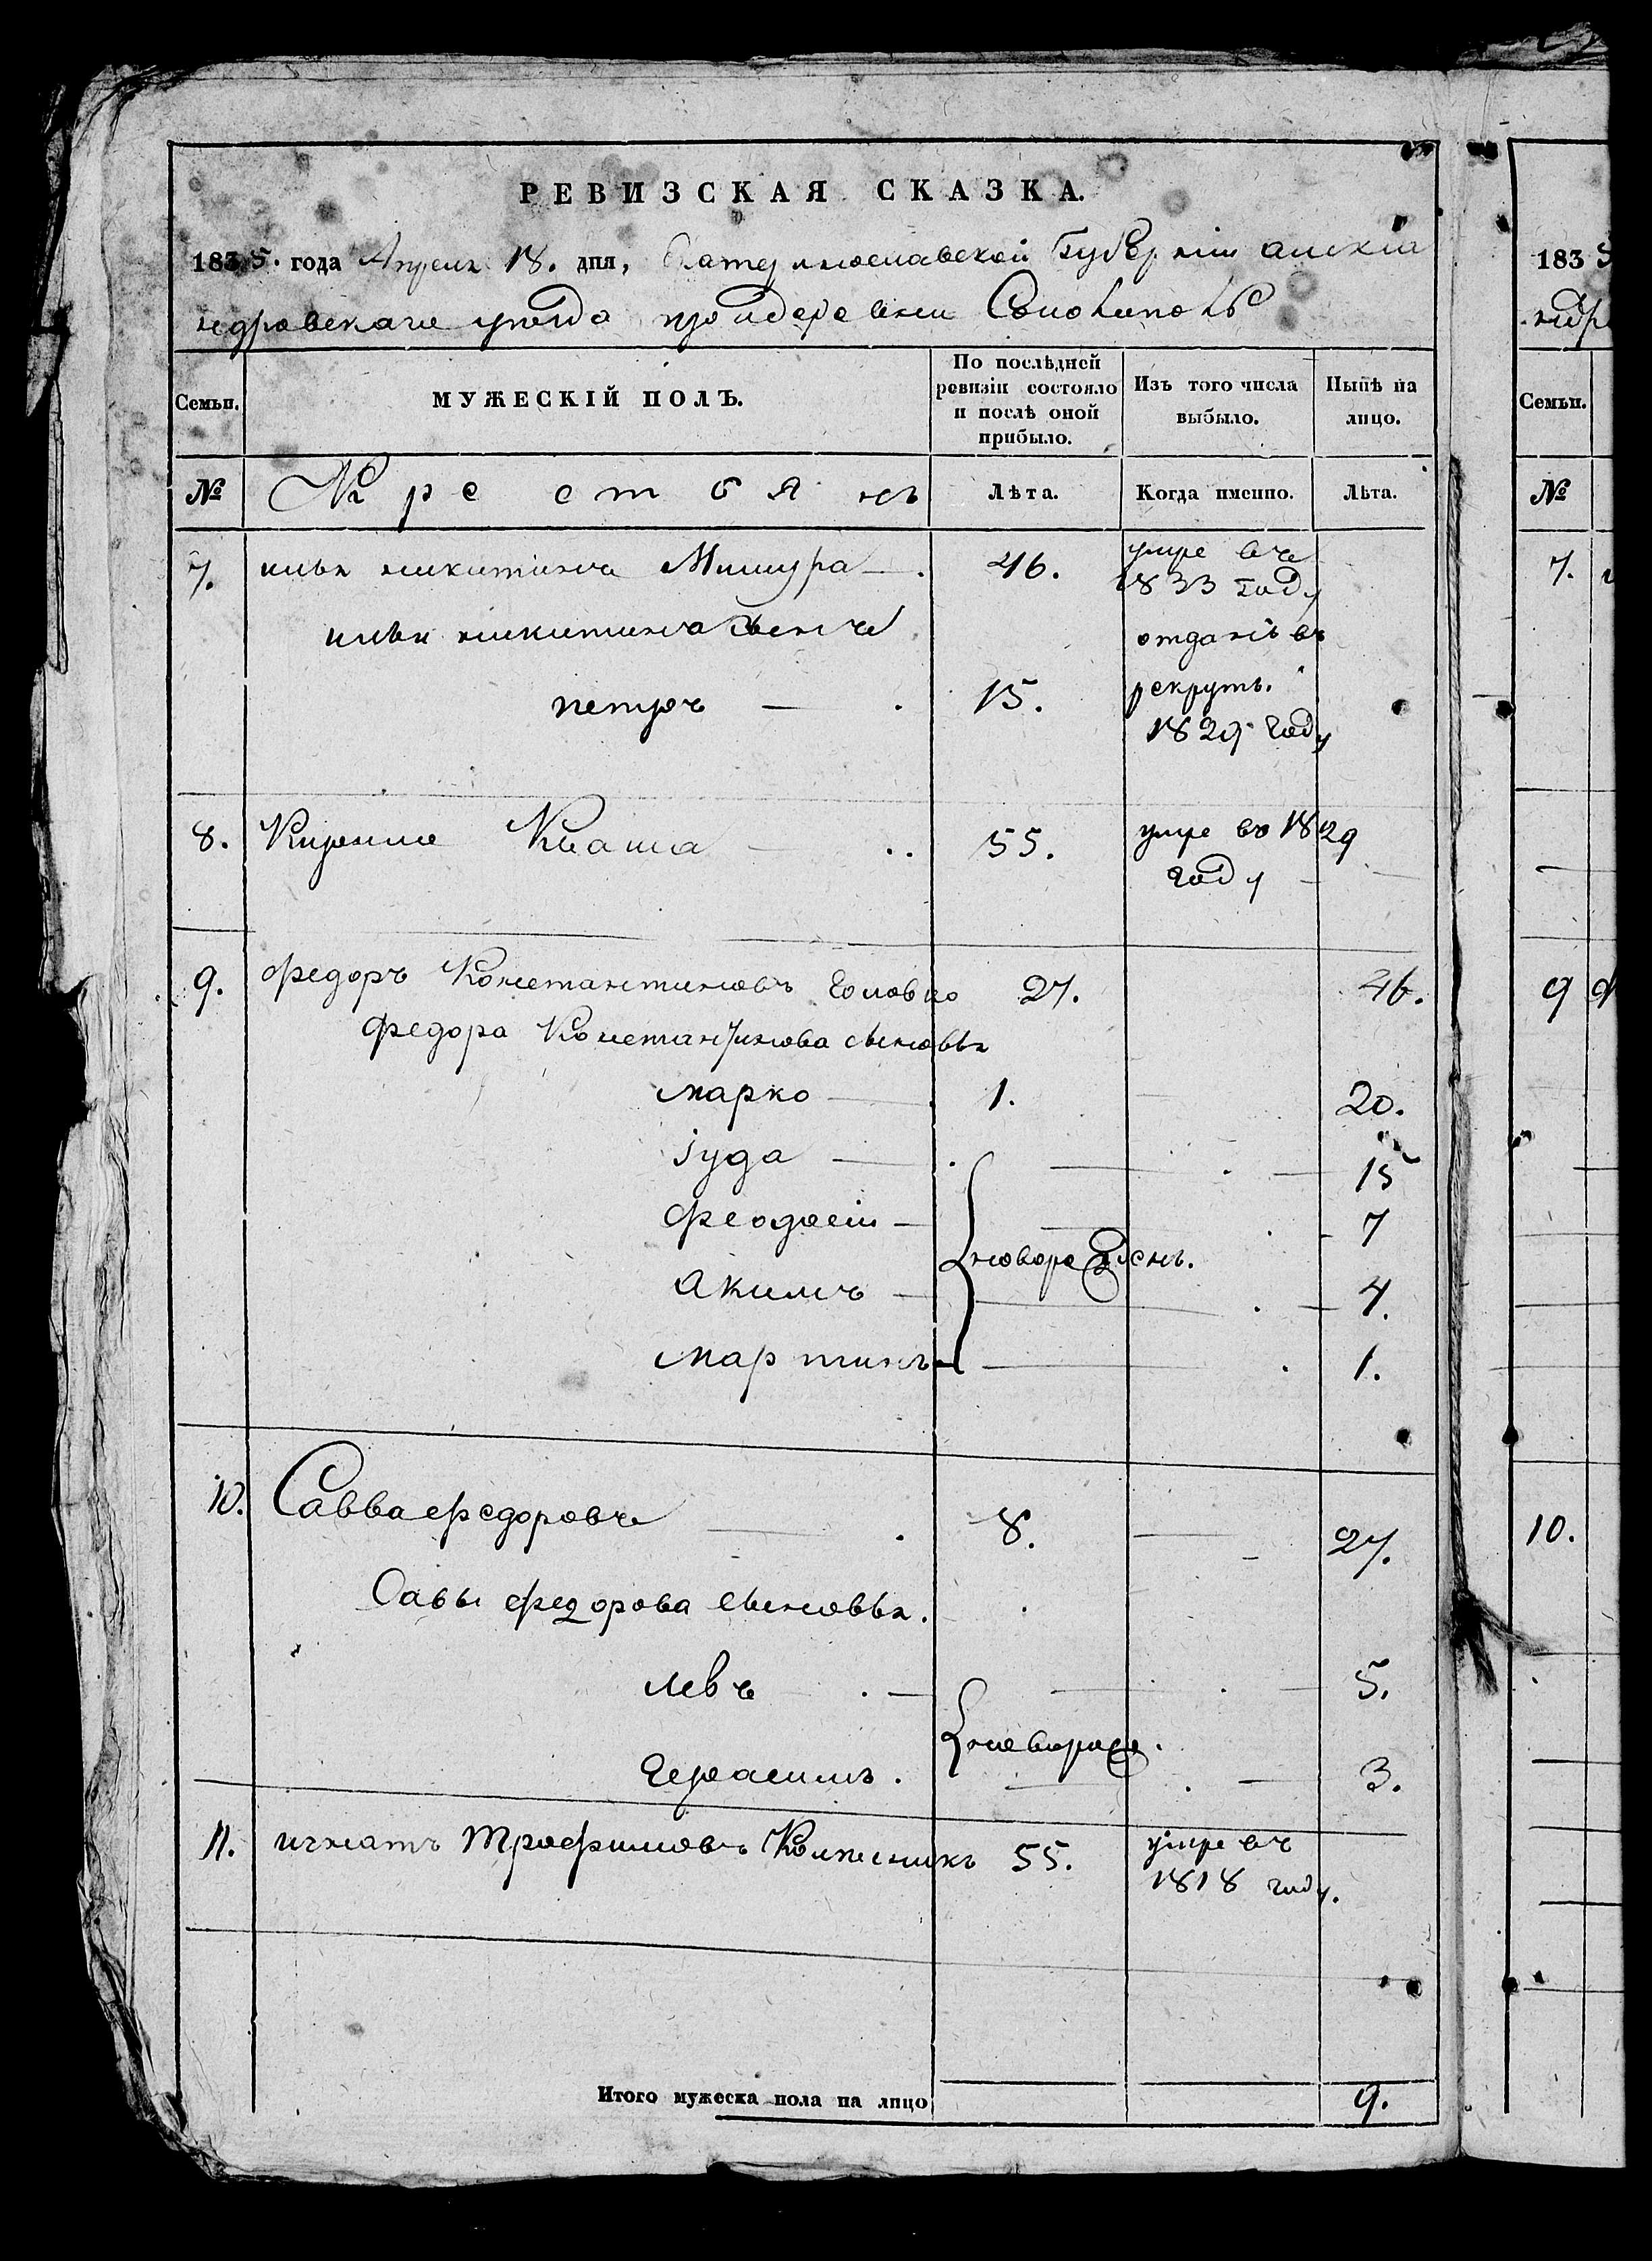 РЕВИЗСКАЯ СКАЗКА.
1835. года Апреля 18. дня, Екатеринославской Губерніи алекса
ндровскаго уезда деревни
Семьи.
МУЖЕСКІЙ ПОЛЪ.
По послѣдней ревизіи состояло и послѣ оной прибыло.
Изъ того числа выбыло.
Нынѣ на лицо.
№
Крестьянъ
Лѣта.
Когда именно.
Лѣта.
7. илья никитинъ Мишура 46. умре въ
1833 году
ильи никитина сынъ отданъ въ
петръ 15. рекруты.
1829 году
8. Кваша 55. умре во 1829
году
9. федоръ Константиновъ Головко 27. 46.
федора Константинова сыновья
марко 1. 20.
Iуда 15
феодосій 7
новорожденъ.
Акимъ 4.
мартинъ 1.
10. Савва федоровъ 8. 27.
Савы федорова сыновья.
левъ 5.
новорожд.
Герасимъ. 3.
11. игнатъ трофимовъ 55. умре въ
1818 году.
Итого мужеска пола на лицо 9.
1835
ндро
Семьи.
№
7.
9
10.